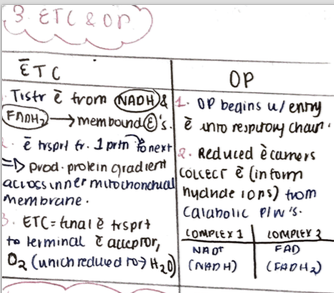 3. ETC & OP
ĒTC
Tnsfr ē from NADH &
FADH₂ → membound ⓔ's.
ē trsprt fr. 1 prtn to next
⇒ prod. protein gradient
across inner mitochondrial
membrane.
3. ETC = final ē trsprt
to terminal ē acceptor,
O₂ (which reduced to → H₂O)
OP
1. OP begins w/ entry
ē into respiratory chain.
2. Reduced ē carriers
collect ē (in form
hydride ions) from
catabolic P/W's.
COMPLEX 1 COMPLEX 2
NAD⁺ FAD
(NADH) (FADH₂)